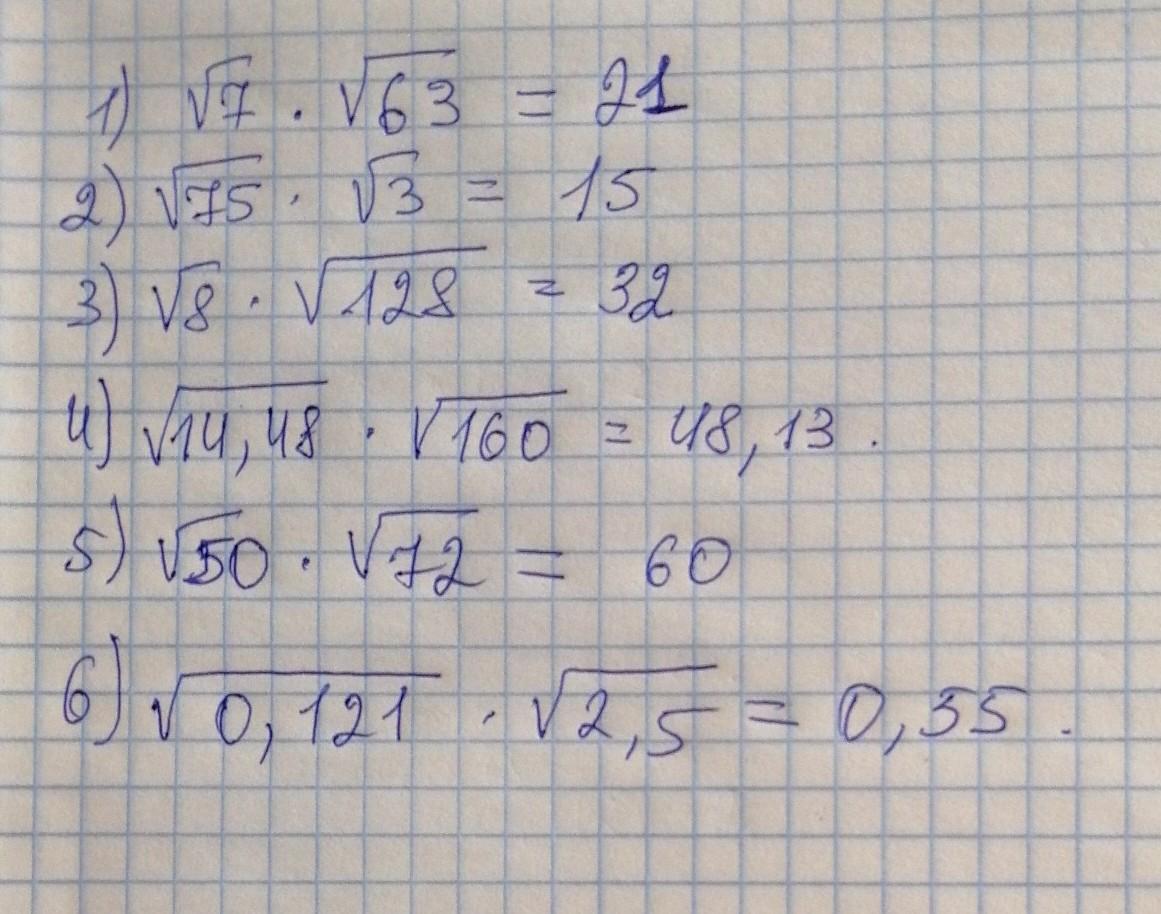 1) √7 · √63 = 21
2) √75 · √3 = 15
3) √8 · √128 = 32
4) √14,48 · √160 = 48,13.
5) √50 · √72 = 60
6) √0,121 · √2,5 = 0,55.